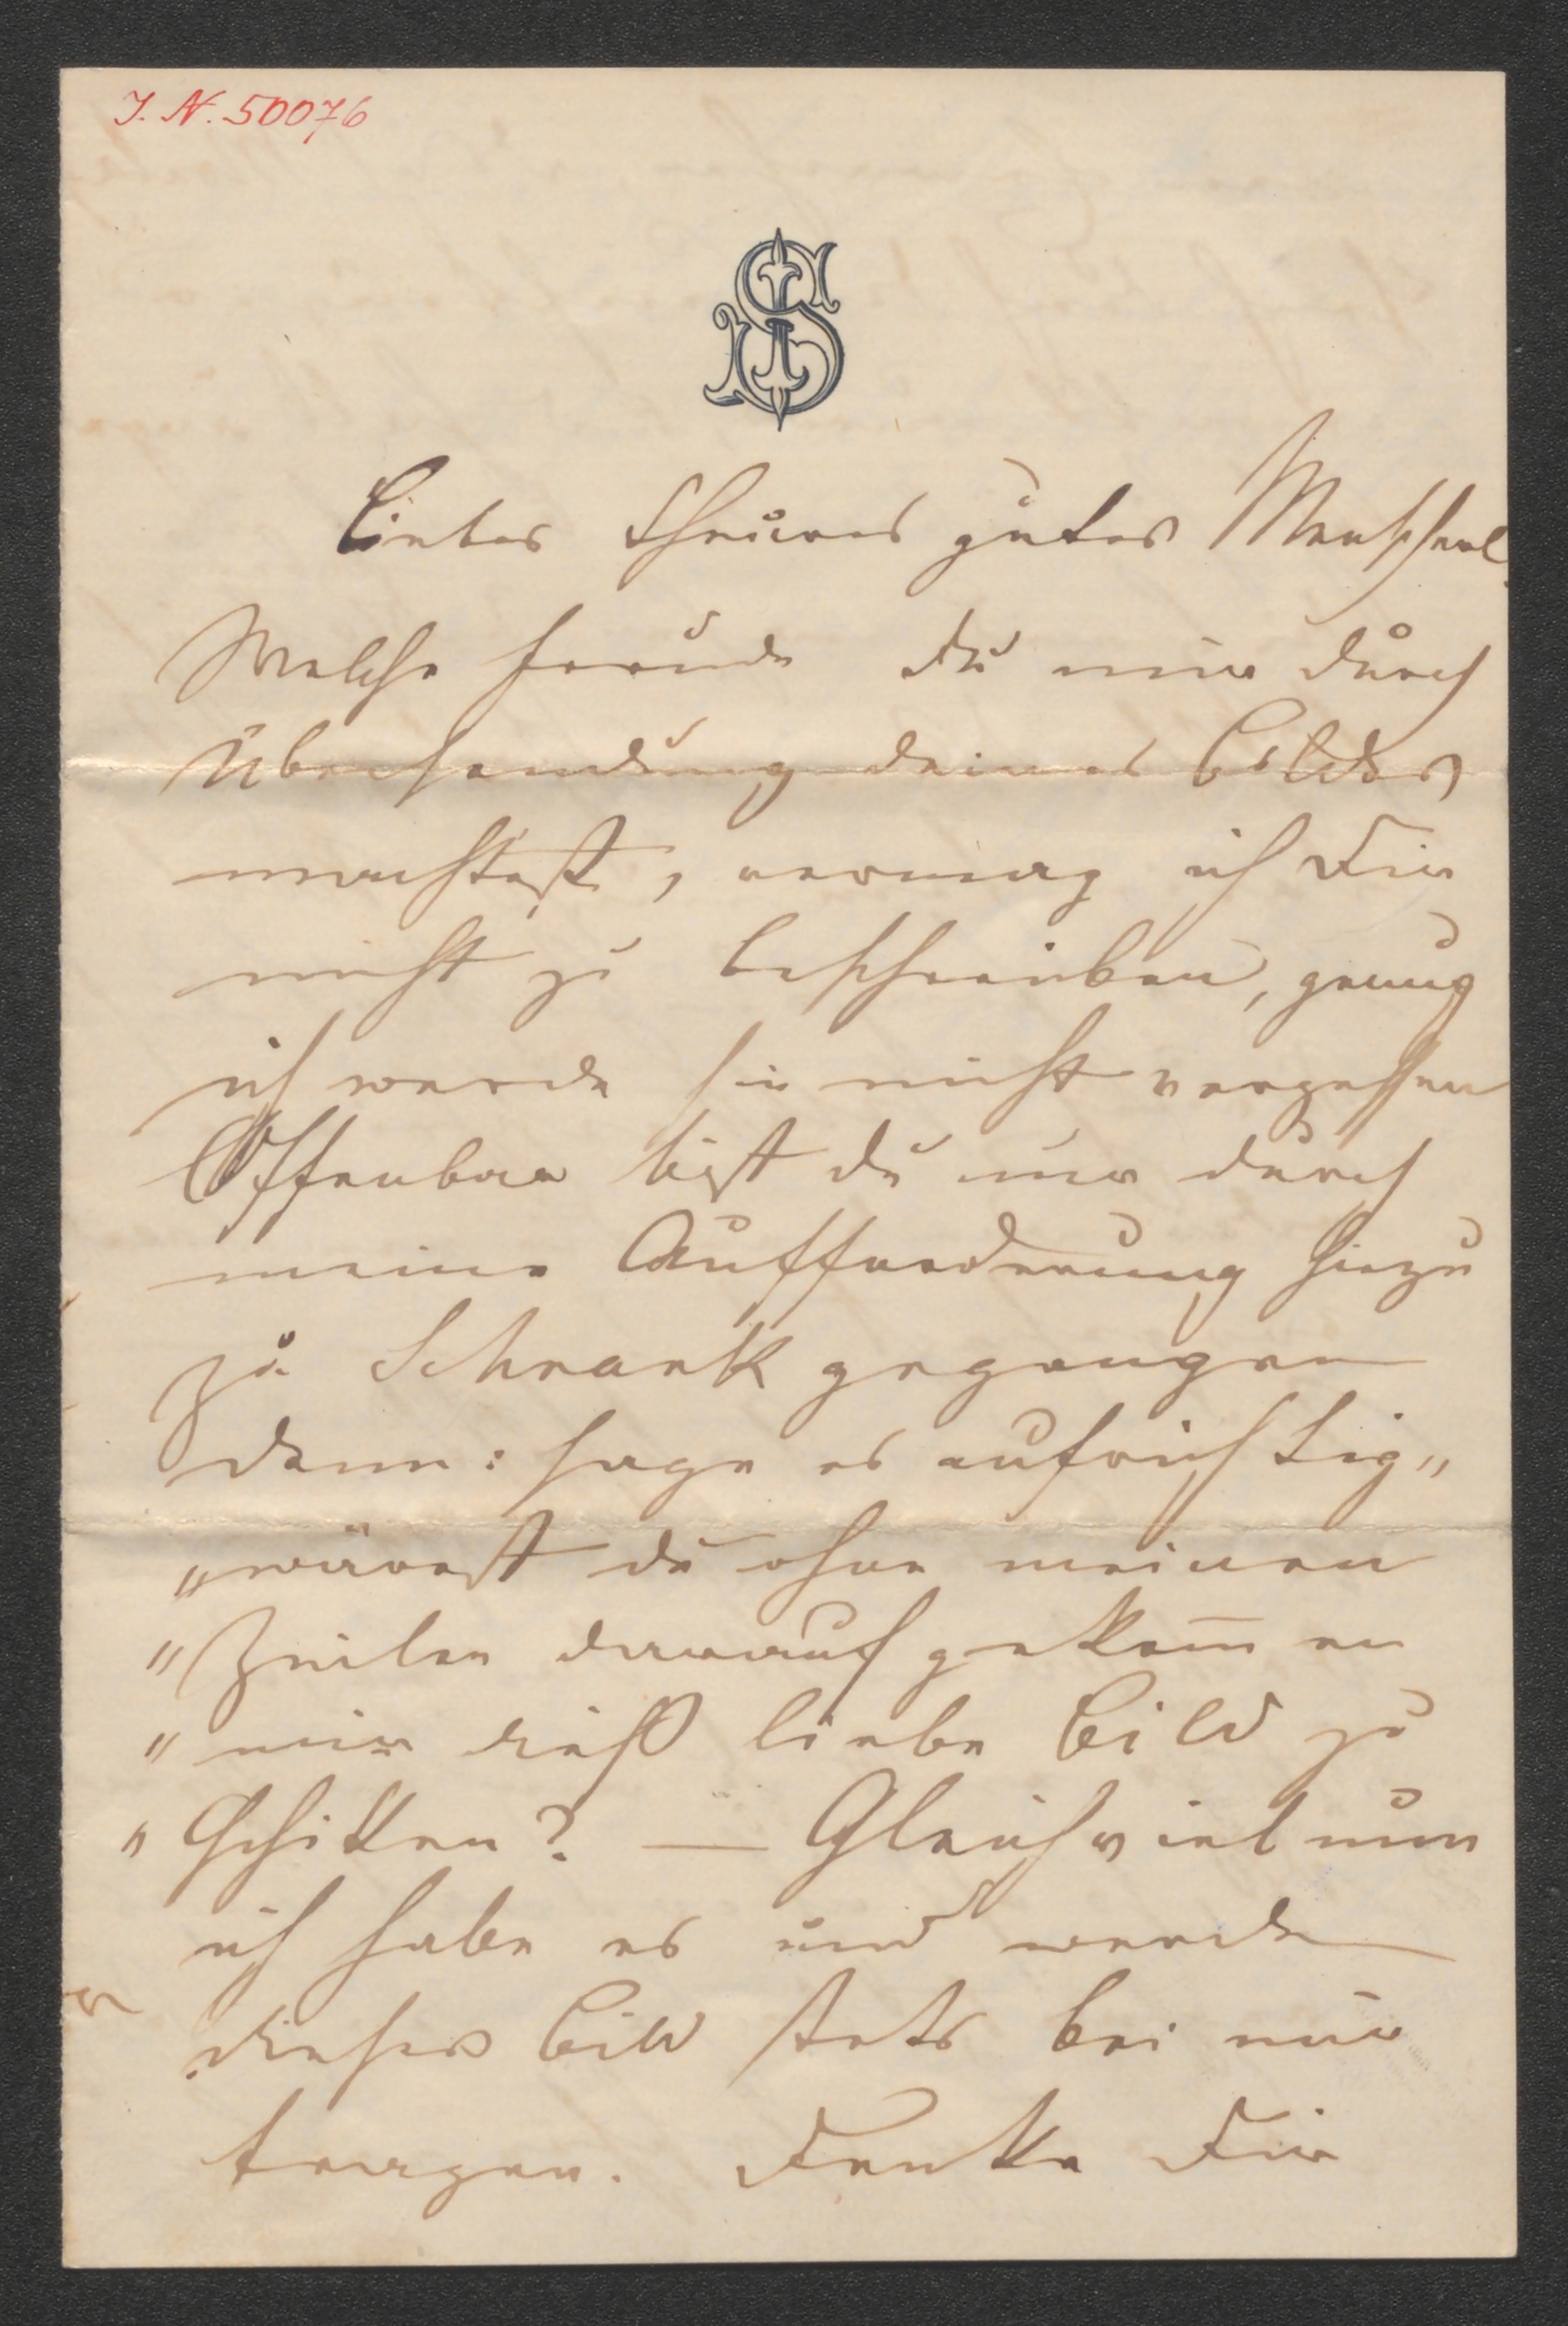 I. N. 50076
Liebes theures gutes Menscherl
Welche Freude du mir durch
Übersendung deines Bildes
machtest, vermag ich Dir
nicht zu beschreiben, genug
ich werde sie nicht vergessen
Offenbar bist du nur durch
meine Aufforderung hiezu
zu Schrank gegangen
denn: sage es aufrichtig„
„wärest du ohne meinen
„Zeilen darauf gekom̅en
„mir dieß liebe Bild zu
„Schiken? — Gleichviel nun
ich habe es und werde
dieses Bild stets bei mir
tragen. Denke Dir